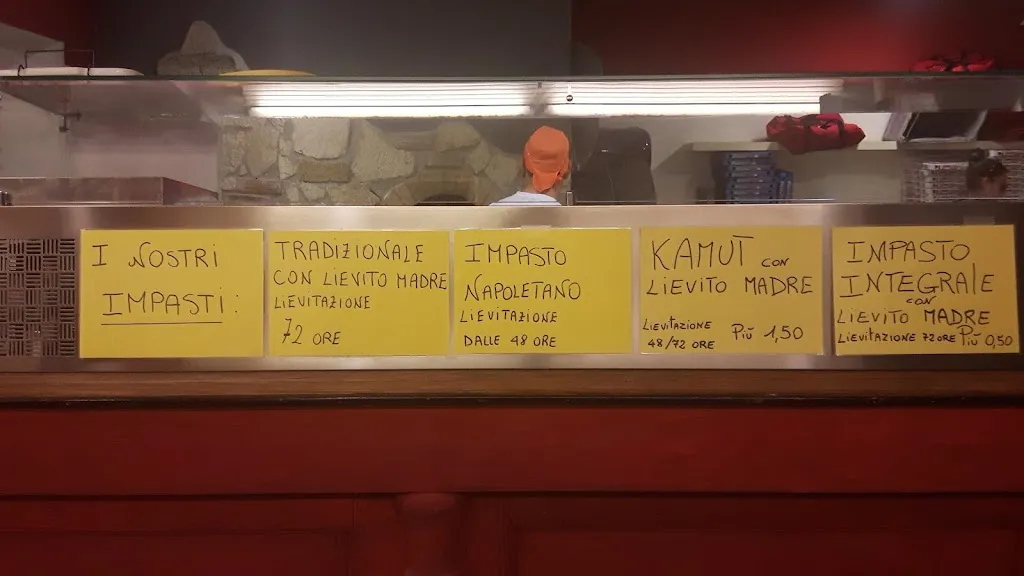 I NOSTRI
IMPASTI:
TRADIZIONALE
CON LIEVITO MADRE
LIEVITAZIONE
72 ORE
IMPASTO
NAPOLETANO
LIEVITAZIONE
DALLE 48 ORE
KAMUT CON
LIEVITO MADRE
LIEVITAZIONE
48/72 ORE PIÙ 1,50
IMPASTO
INTEGRALE
CON
LIEVITO MADRE
LIEVITAZIONE 72 ORE PIÙ 0,50